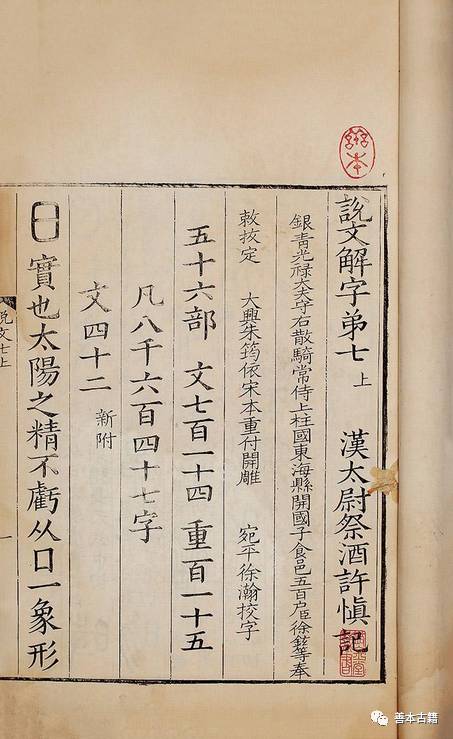 說文解字弟七上 漢太尉祭酒許慎記
銀青光祿大夫守右散騎常侍上柱國東海縣開國子食邑五百戶臣徐鉉等奉
敕挍定 大興朱筠依宋本重付開雕 宛平徐瀚挍字
五十六部 文七百一十四 重百一十五
凡八千六百四十七字
文四十二 新附
日 實也太陽之精不虧从囗一象形
說文七上
一
善本古籍